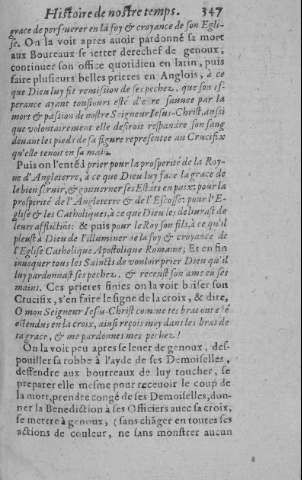 Histoire de nostre temps. 347
grace de perseuerer en la foy & croyance de son Egli-
se. On la voit apres auoir pardonné sa mort
aux Boureaux se ietter derechef de genoux,
continuer son office quotidien en latin, puis
faire plusieurs belles prieres en Anglois, à ce
que Dieu luy fit remission de ses pechez, que son es-
perance ayant tousiours esté d'estre sauuee par la
mort & passion de nostre Seigneur Iesus-Christ, ainsi
que volontairement elle desiroit respandre son sang
deuant les pieds de sa figure representee au Crucifix
qu'elle tenoit en sa main.
Puis on l'entéd prier pour la prosperité de la Roy-
ne d'Angleterre, à ce que Dieu luy face la grace de
le bien seruir, & gouuerner ses Estats en paix: pour la
prosperité de l'Angleterre & de l'Escosse: pour l'E-
glise & les Catholiques, à ce que Dieu les deliurast de
leurs afflictiõs: & puis pour le Roy son fils, à ce qu'il
pleust à Dieu de l'illuminer de la foy & croyance de
l'Eglise Catholique Apostolique Romaine, Et en fin
inuoquer tous les Saincts de vouloir prier Dieu qu'il
luy pardonnast ses pechez, & receust son ame en ses
mains. Ces prieres finies on la voit baiser son
Crucifix, s'en faire le signe de la croix, & dire,
O mon Seigneur Iesu-Christ comme tes bras ont esté
estendus en la croix, ainsi reçois moy dans les bras de
ta grace, & me pardonnes mes pechez!
On la voit peu apres se leuer de genoux, des-
pouiller sa robbe à l'ayde de ses Demoiselles,
deffendre aux bourreaux de luy toucher, se
preparer elle mesme pour receuoir le coup de
la mort, prendre congé de ses Demoiselles, don-
ner la Benediction à ses Officiers auec sa croix,
se mettre à genoux, (sans chãger en toutes ses
actions de couleur, ne sans monstrer aucun